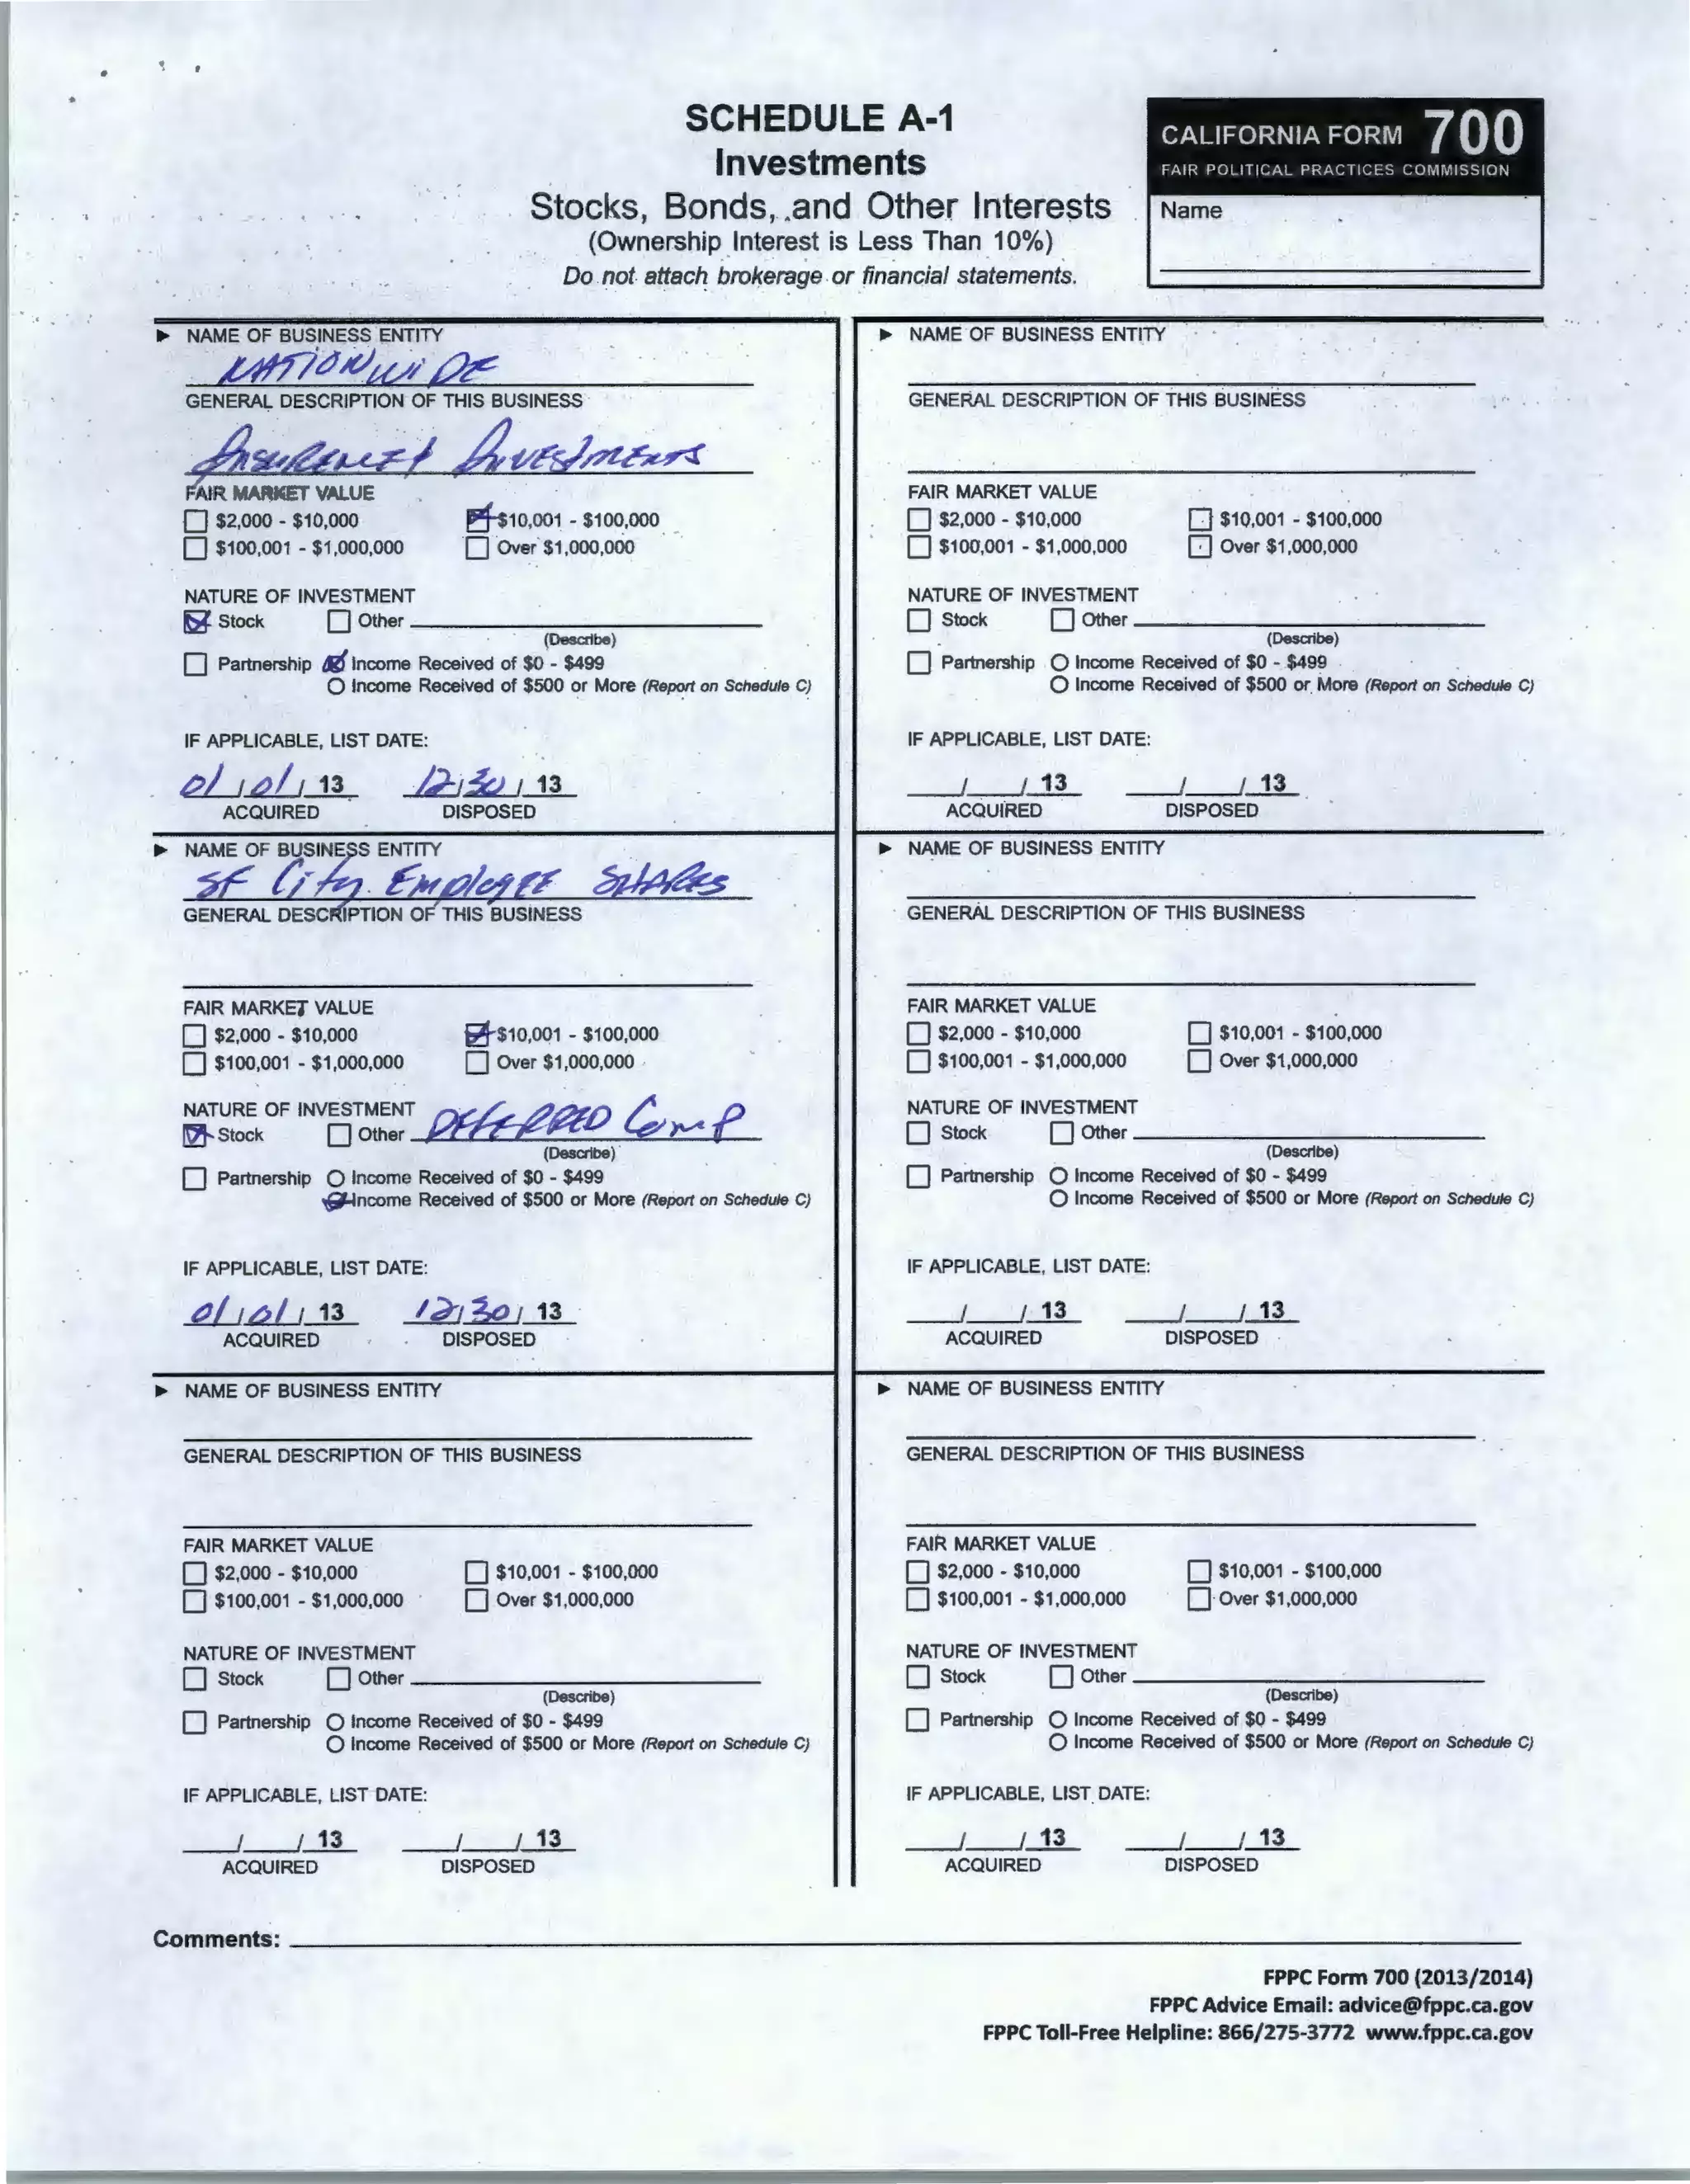 SCHEDULE A-1
Investments
Stocks, Bonds, and Other Interests
(Ownership Interest is Less Than 10%)
Do not attach brokerage or financial statements.
CALIFORNIA FORM 700
FAIR POLITICAL PRACTICES COMMISSION
Name
► NAME OF BUSINESS ENTITY
NATIONWIDE
GENERAL DESCRIPTION OF THIS BUSINESS
Insurance & Investments
FAIR MARKET VALUE
$2,000 - $10,000 $10,001 - $100,000
$100,001 - $1,000,000 Over $1,000,000
NATURE OF INVESTMENT
Stock Other
(Describe)
Partnership Income Received of $0 - $499
Income Received of $500 or More (Report on Schedule C)
IF APPLICABLE, LIST DATE:
01/01/13 12/30/13
ACQUIRED DISPOSED
► NAME OF BUSINESS ENTITY
SF City Employee SHARES
GENERAL DESCRIPTION OF THIS BUSINESS
FAIR MARKET VALUE
$2,000 - $10,000 $10,001 - $100,000
$100,001 - $1,000,000 Over $1,000,000
NATURE OF INVESTMENT
Stock Other DEFERRED Comp
(Describe)
Partnership Income Received of $0 - $499
Income Received of $500 or More (Report on Schedule C)
IF APPLICABLE, LIST DATE:
01/01/13 12/30/13
ACQUIRED DISPOSED
► NAME OF BUSINESS ENTITY
GENERAL DESCRIPTION OF THIS BUSINESS
FAIR MARKET VALUE
$2,000 - $10,000 $10,001 - $100,000
$100,001 - $1,000,000 Over $1,000,000
NATURE OF INVESTMENT
Stock Other
(Describe)
Partnership Income Received of $0 - $499
Income Received of $500 or More (Report on Schedule C)
IF APPLICABLE, LIST DATE:
/ / 13 / / 13
ACQUIRED DISPOSED
► NAME OF BUSINESS ENTITY
GENERAL DESCRIPTION OF THIS BUSINESS
FAIR MARKET VALUE
$2,000 - $10,000 $10,001 - $100,000
$100,001 - $1,000,000 Over $1,000,000
NATURE OF INVESTMENT
Stock Other
(Describe)
Partnership Income Received of $0 - $499
Income Received of $500 or More (Report on Schedule C)
IF APPLICABLE, LIST DATE:
/ / 13 / / 13
ACQUIRED DISPOSED
► NAME OF BUSINESS ENTITY
GENERAL DESCRIPTION OF THIS BUSINESS
FAIR MARKET VALUE
$2,000 - $10,000 $10,001 - $100,000
$100,001 - $1,000,000 Over $1,000,000
NATURE OF INVESTMENT
Stock Other
(Describe)
Partnership Income Received of $0 - $499
Income Received of $500 or More (Report on Schedule C)
IF APPLICABLE, LIST DATE:
/ / 13 / / 13
ACQUIRED DISPOSED
► NAME OF BUSINESS ENTITY
GENERAL DESCRIPTION OF THIS BUSINESS
FAIR MARKET VALUE
$2,000 - $10,000 $10,001 - $100,000
$100,001 - $1,000,000 Over $1,000,000
NATURE OF INVESTMENT
Stock Other
(Describe)
Partnership Income Received of $0 - $499
Income Received of $500 or More (Report on Schedule C)
IF APPLICABLE, LIST DATE:
/ / 13 / / 13
ACQUIRED DISPOSED
Comments:
FPPC Form 700 (2013/2014)
FPPC Advice Email: advice@fppc.ca.gov
FPPC Toll-Free Helpline: 866/275-3772 www.fppc.ca.gov